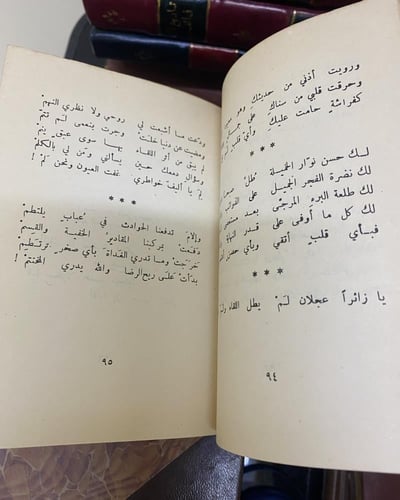 ورويت أذني من حديثك وهو
وحرقت قلبي من سناك على
كفراشة حامت عليك وأي قلب
* * *
لك حسن نوار الخميلة طل
لك نضرة الفجر الجميل على
لك طلعة البرء المرجى بعد
لك كل ما أوفى على قدر
فبأي قلب أتقي وبأي حصن
* * *
يا زائراً عجلان لم يطل اللقاء
٩٤
ودعت ما أشبعت لي روحي ولا نظري النهم
ومضيت عن دنيا خلت وجرت بنعمى لم تتم
لم يبق من أثر اللقاء بها سوى عبق ينم
وسؤال دمعك حين يسألني ومن لي بالكلم
لِمَ يا أليف خواطري غفت العيون ونحن لم !
* * *
وإلام تدفعنا الحوادث في عباب يلتطم
دفعت بمركبنا المقادير الخفية والقسم
خرجت وما تدري الغداة بأي صخر ترتطم
بدأت على ريح الرضا والله يدري المختتم !
٩٥